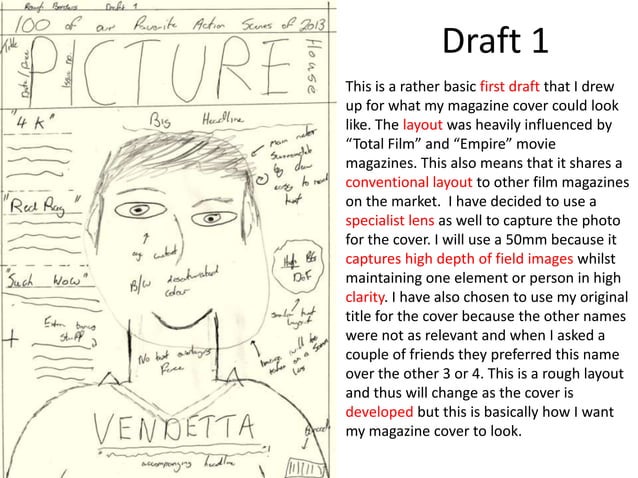 Rough Borders Draft 1
100 of our Favorite Action Scenes of 2013
Title
Date / Price
Issue no
PICTURE
House
"4 K"
Big Headline
Main
"Red Ray"
eye contact
B/W desaturated
colour
High BG
DoF
"Such Wow"
layout
Extra bonus
Stuff
+
Image will be
taken on a 50mm
Lens
No text
Face
VENDETTA
accompanying headline
Barcode
Draft 1
This is a rather basic first draft that I drew
up for what my magazine cover could look
like. The layout was heavily influenced by
“Total Film” and “Empire” movie
magazines. This also means that it shares a
conventional layout to other film magazines
on the market. I have decided to use a
specialist lens as well to capture the photo
for the cover. I will use a 50mm because it
captures high depth of field images whilst
maintaining one element or person in high
clarity. I have also chosen to use my original
title for the cover because the other names
were not as relevant and when I asked a
couple of friends they preferred this name
over the other 3 or 4. This is a rough layout
and thus will change as the cover is
developed but this is basically how I want
my magazine cover to look.